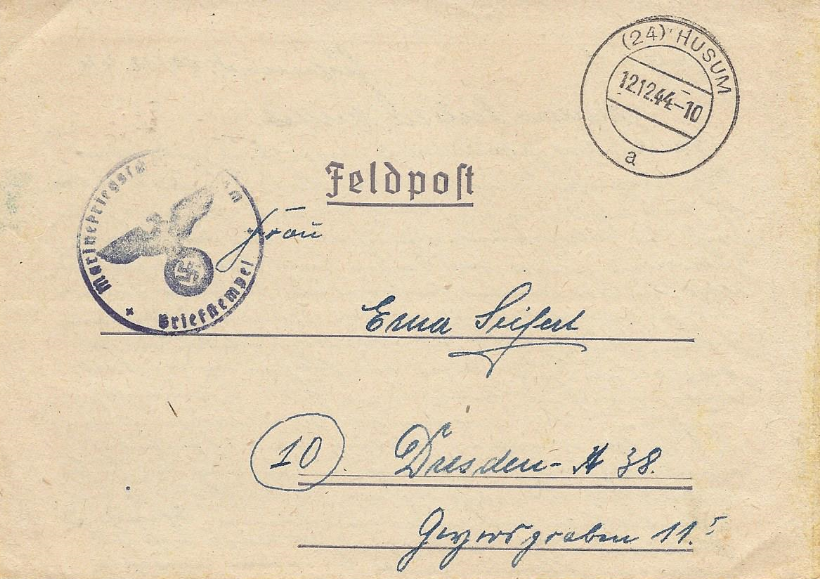 (24) HUSUM
12.12.44-10
a
Feldpost
Marinekriegs
Briefstempel
Frau
Erna Seifert
(10) Dresden-A 38.
Geyersgraben 11.I